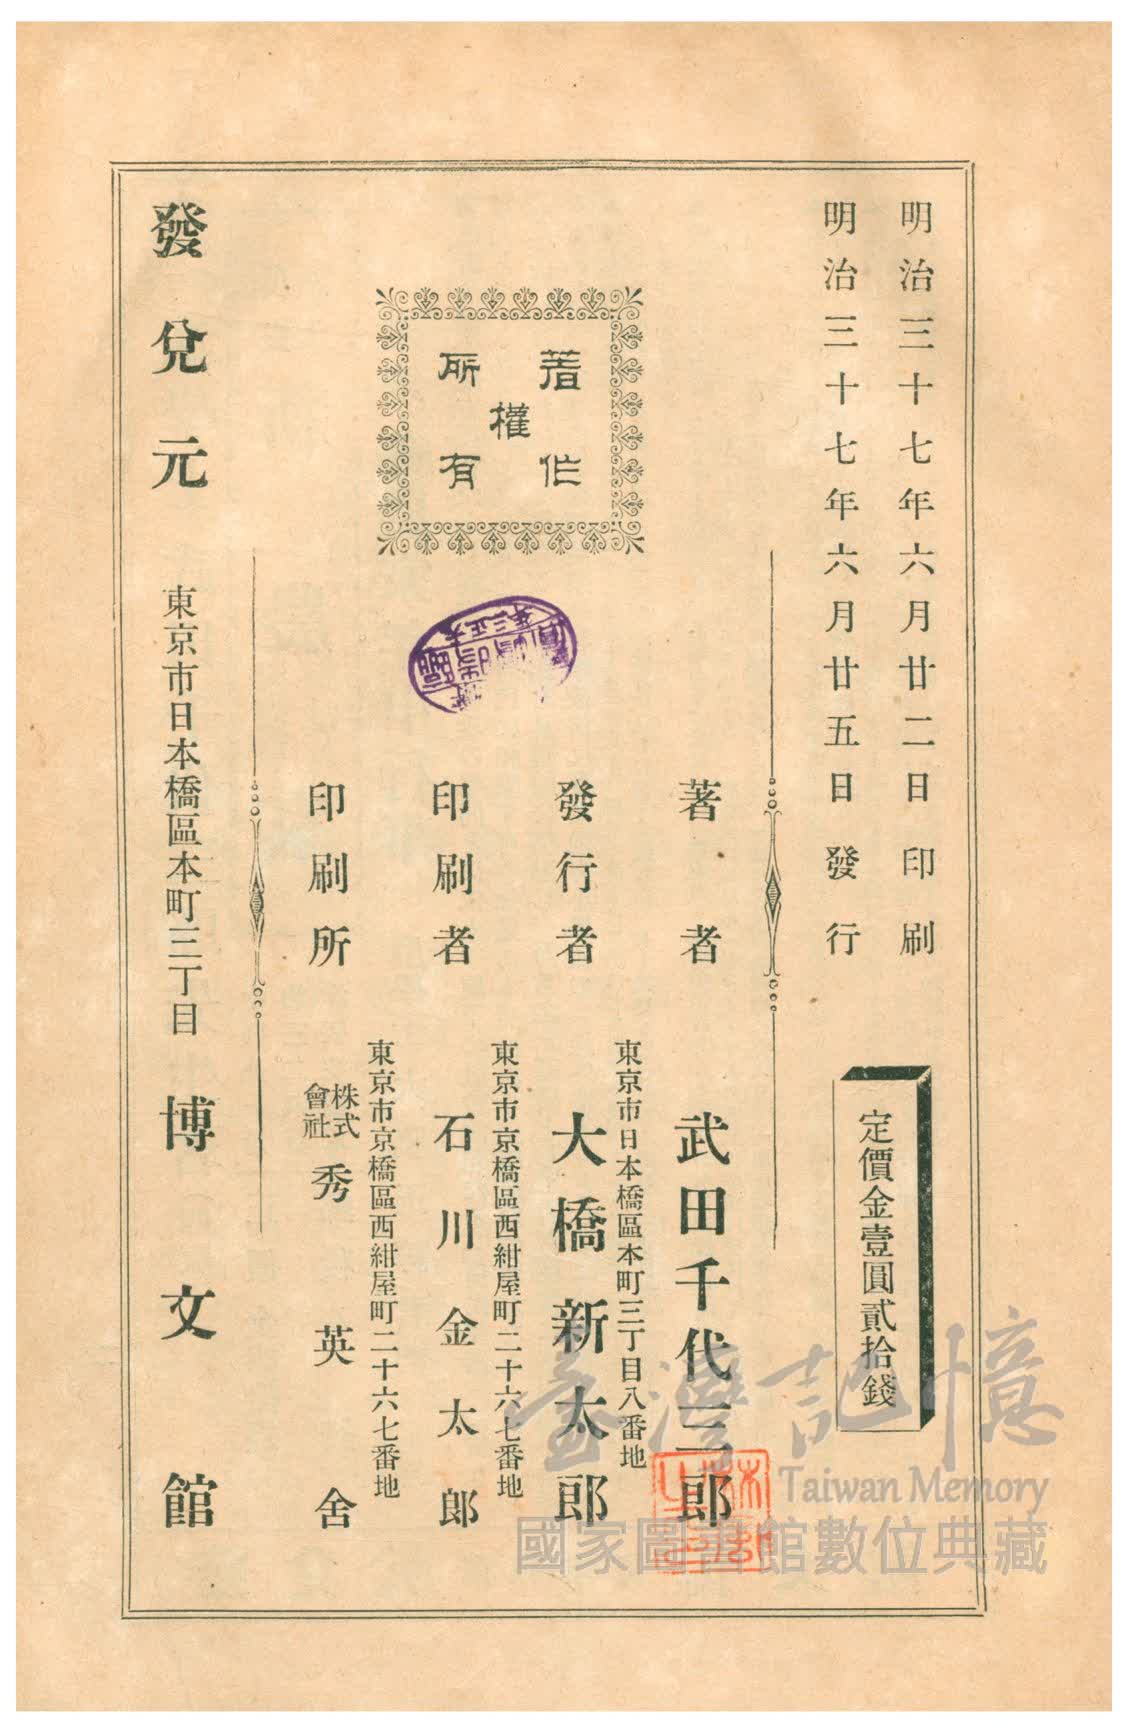 明治三十七年六月廿二日印刷
明治三十七年六月廿五日發行
定價金壹圓貳拾錢
著作權所有
著者 武田千代三郎
東京市日本橋區本町三丁目八番地
發行者 大橋新太郎
東京市京橋區西紺屋町二十六七番地
印刷者 石川金太郎
東京市京橋區西紺屋町二十六七番地
印刷所 株式會社 秀英舍
發兌元 東京市日本橋區本町三丁目 博文館
臺灣記憶
Taiwan Memory
國家圖書館數位典藏